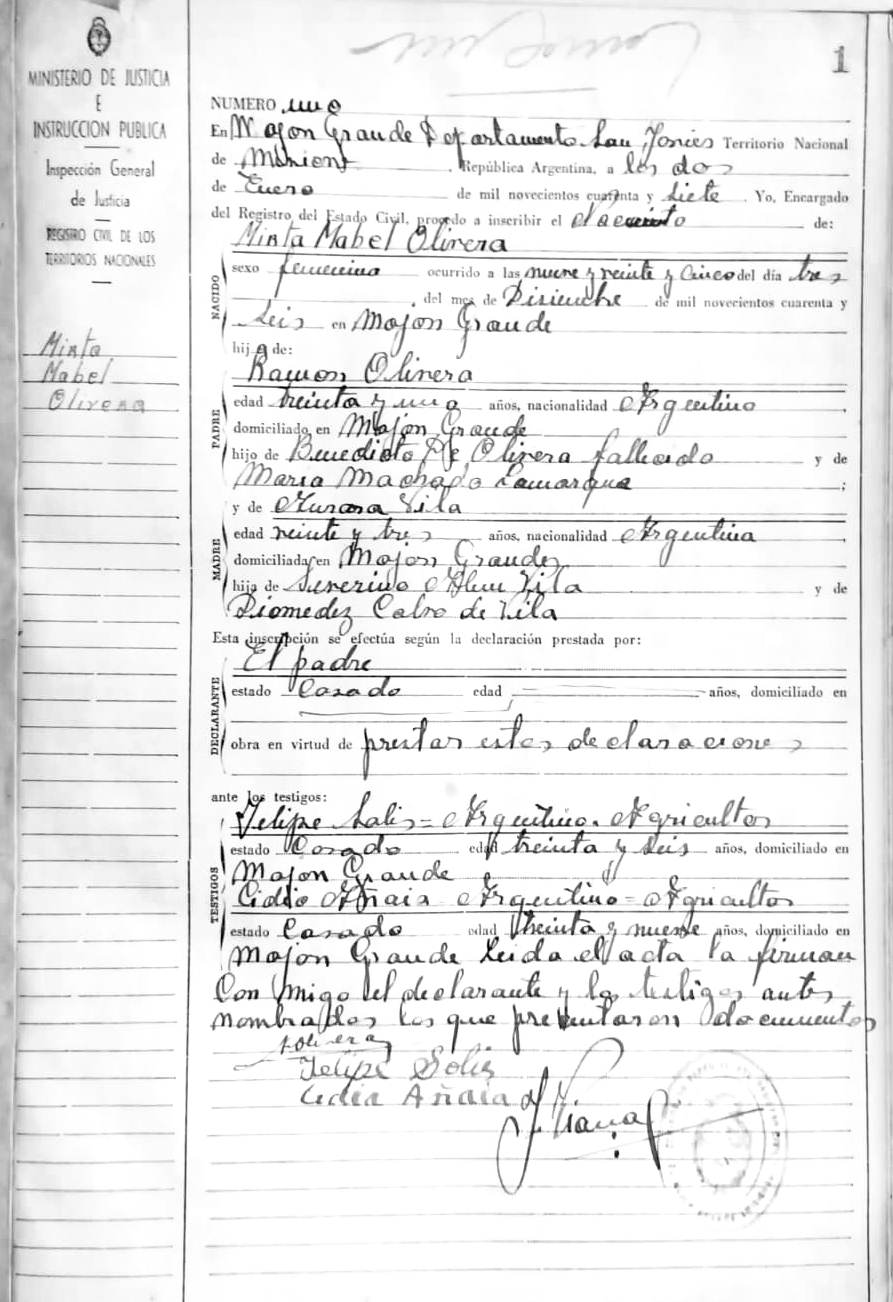 1
MINISTERIO DE JUSTICIA
E
INSTRUCCION PUBLICA
Inspección General
de Justicia
REGISTRO CIVIL DE LOS
TERRITORIOS NACIONALES
Mirta
Mabel
Olivera
NUMERO uno
En Mojon Grande Departamento San Javier Territorio Nacional
de Misiones, República Argentina, a los dos
de Enero de mil novecientos cuarenta y siete. Yo, Encargado
del Registro del Estado Civil, procedo a inscribir el Nacimiento de:
Mirta Mabel Olivera
NACIDO
sexo femenino ocurrido a las nueve y veinte y cinco del día tres
del mes de Disiembre de mil novecientos cuarenta y
seis en Mojon Grande
hija de:
Ramon Olivera
PADRE
edad treinta y uno años, nacionalidad Argentino,
domiciliado en Mojon Grande
hijo de Benedicto De Olivera fallecido y de
Maria Machado Lamarque;
y de Aurora Vila
MADRE
edad veinte y tres años, nacionalidad Argentina,
domiciliada en Mojon Grande
hija de Severino Alem Vila y de
Diomedez Calvo de Vila
Esta inscripción se efectúa según la declaración prestada por:
El padre
DECLARANTE
estado Casado edad años, domiciliado en
obra en virtud de prestar estas declaraciones
ante los testigos:
TESTIGOS
Felipe Solis = Argentino. Agricultor
estado Casado edad treinta y seis años, domiciliado en
Mojon Grande
Cidio Añaia Argentino = Agricultor
estado Casado edad treinta y nueve años, domiciliado en
Mojon Grande Leida el acta la firman
Con migo el declarante y los testigos antes
nombrados los que presentaron documentos
Felipe Solis
Cidia Añaia